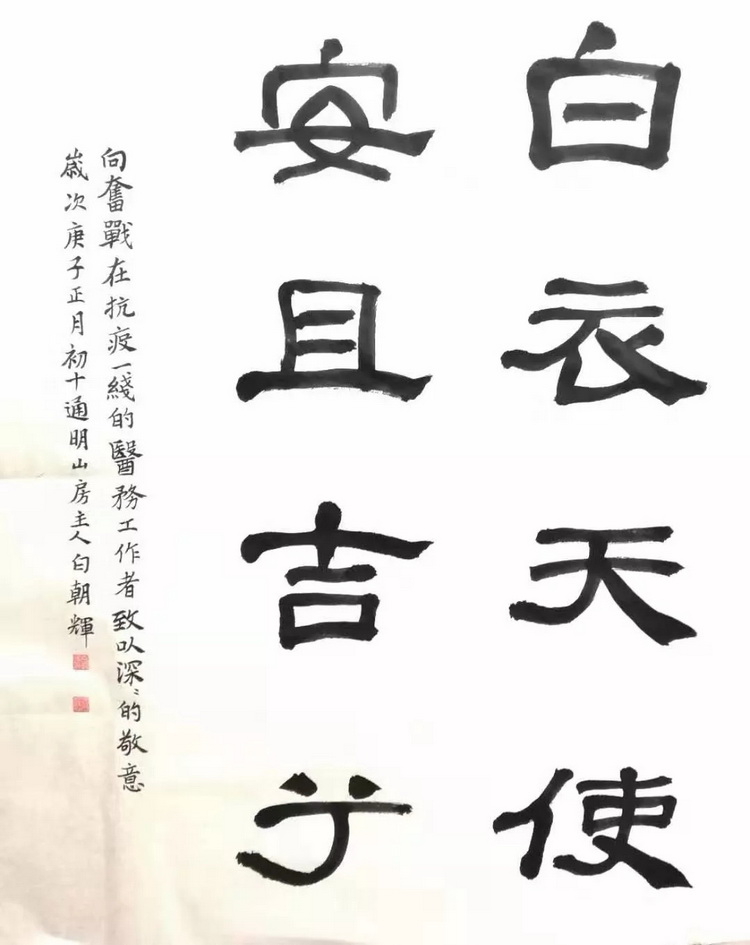 白衣天使
安且吉兮
向奮戰在抗疫一綫的醫務工作者致以深〻的敬意
歲次庚子正月初十通明山房主人白朝輝